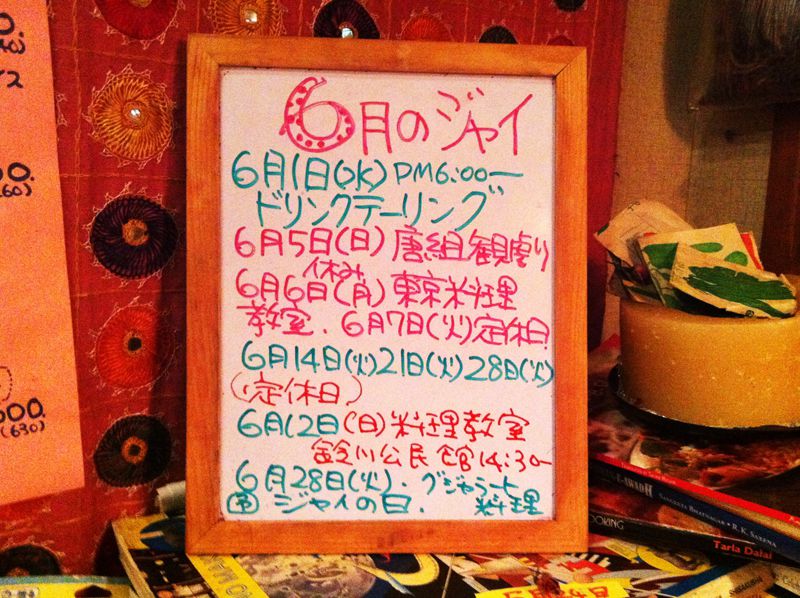 6月のジャイ
6月1日(水)PM6:00〜
ドリンクテーリング
6月5日(日)唐組観劇り
休み
6月6日(月)東京料理
教室.6月7日(火)定休日
6月14日(火)21日(火)28日(火)
(定休日)
6月12日(日)料理教室
鈴川公民館14:30〜
6月28日(火).グジャラート
ジャイの日. 料理
000.
(630)
AWADH
SANGEETA BHATNAGAR • R.K. SAXENA
OOKING
Tarla Dalal
5月24日